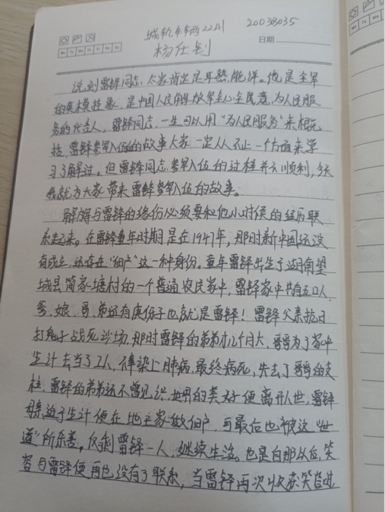 城轨车辆2221 20038035
杨任剑
日期
说到雷锋同志,大家肯定是耳熟能详。他是全军
的模范,是中国人民解放军全心全意为人民服
务的代表人,雷锋同志一生可以用“为人民服务”来概
括,雷锋参军入伍的故事大家一定从不止一方面来学
习了解过。但雷锋同志参军入伍的过程并不顺利,今天
我就为大家带来雷锋参军入伍的故事。
解放与雷锋的缘份必须要和他小时候的经历联
系起来。在雷锋童年时期是在1947年,那时新中国还没
有成立,还存在“佃户”这一种身份。童年雷锋出生于湖南望
城县简家塘村的一个普通农民家中,雷锋家中共有五口人
爹、娘、哥、弟还有底份子也就是雷锋!雷锋父亲抗日
打鬼子战死沙场,那时雷锋的弟弟几个月大,哥哥为了家中
生计去当了工人,传染上肺病,最终病死,失去了哥哥的支
柱,雷锋的弟弟还不曾见识世界的美好便离开人世,雷锋
母亲迫于生计便在地主家做佣户,可最后也被这“世
道”所杀害,仅剩雷锋一人,继续生活。也是自那以后,笑
容与雷锋便再也没有了联系,当雷锋再次收获笑容是